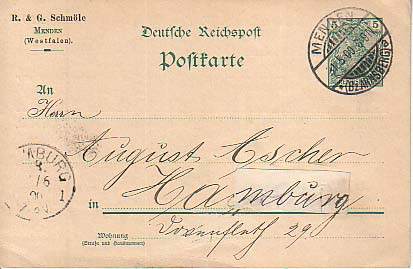 R. & G. Schmöle
Menden
(Westfalen).
Deutsche Reichspost
Postkarte
5
MENDEN
(BZ. ARNSBERG)
An
Herrn
August Ascher
HAMBURG
1
in Hamburg
Wohnung
(Straße und Hausnummer)
Dovenfleth 29.